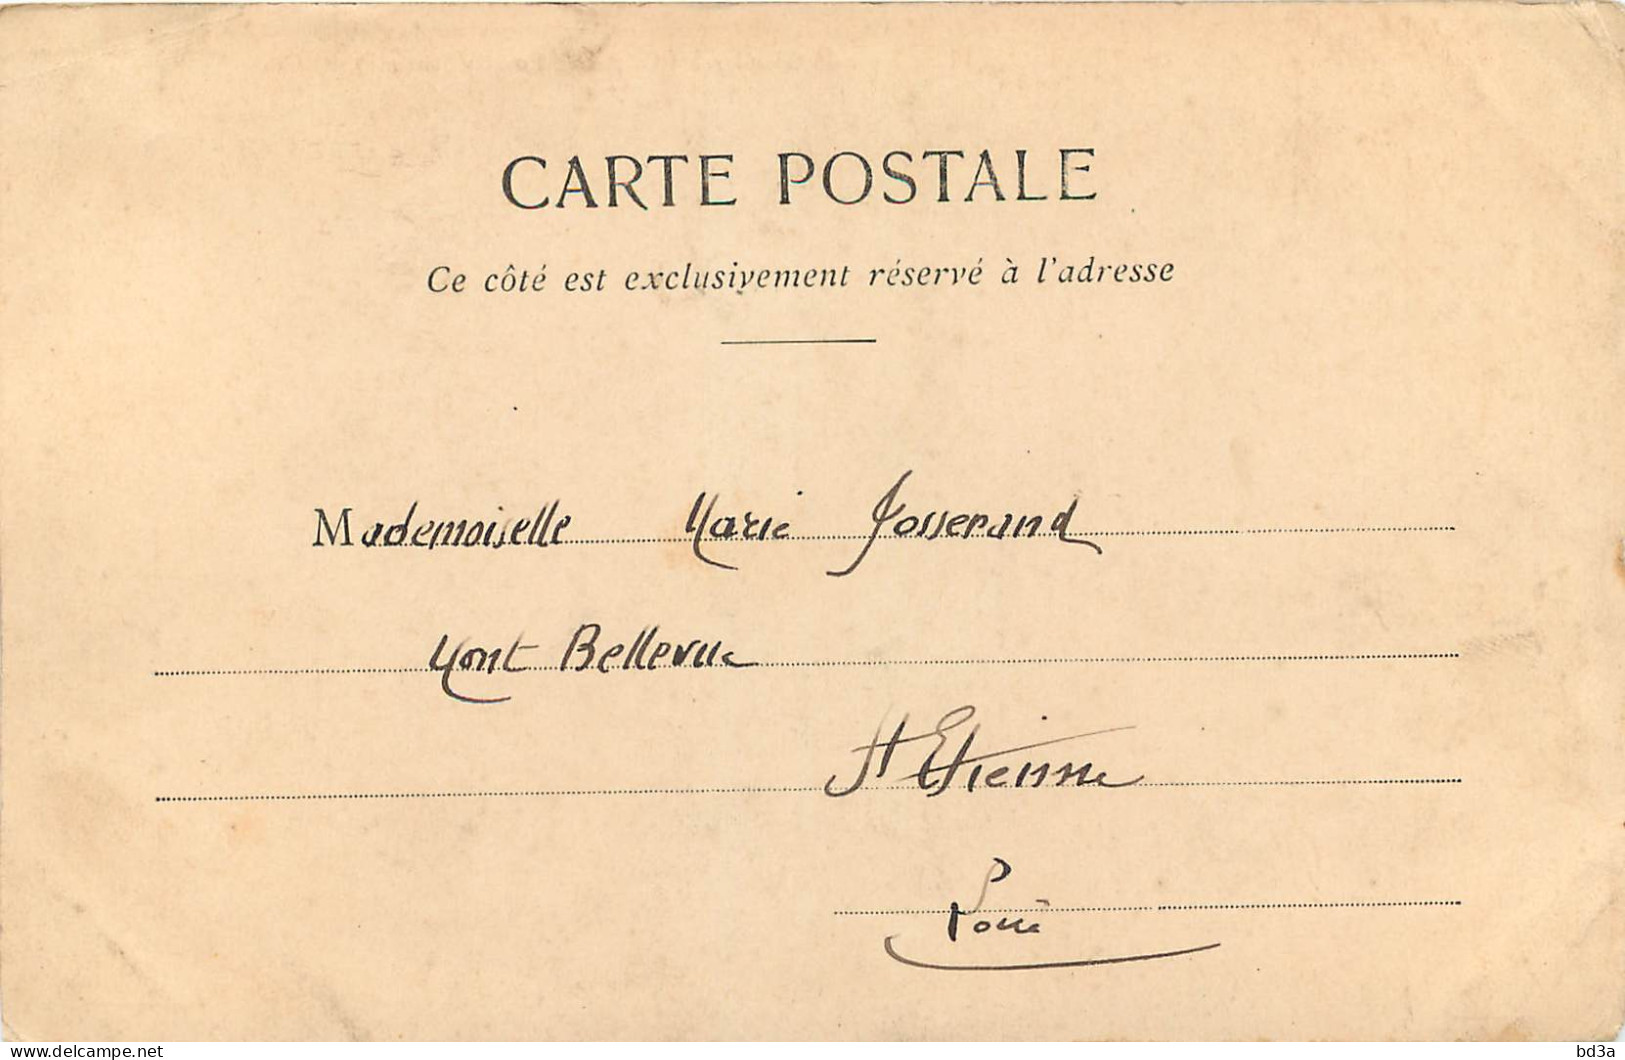 CARTE POSTALE
Ce côté est exclusivement réservé à l'adresse
Mademoiselle Marie Josserand
Mont Bellevue
St Etienne
Loire
delcampe.net
bd3a